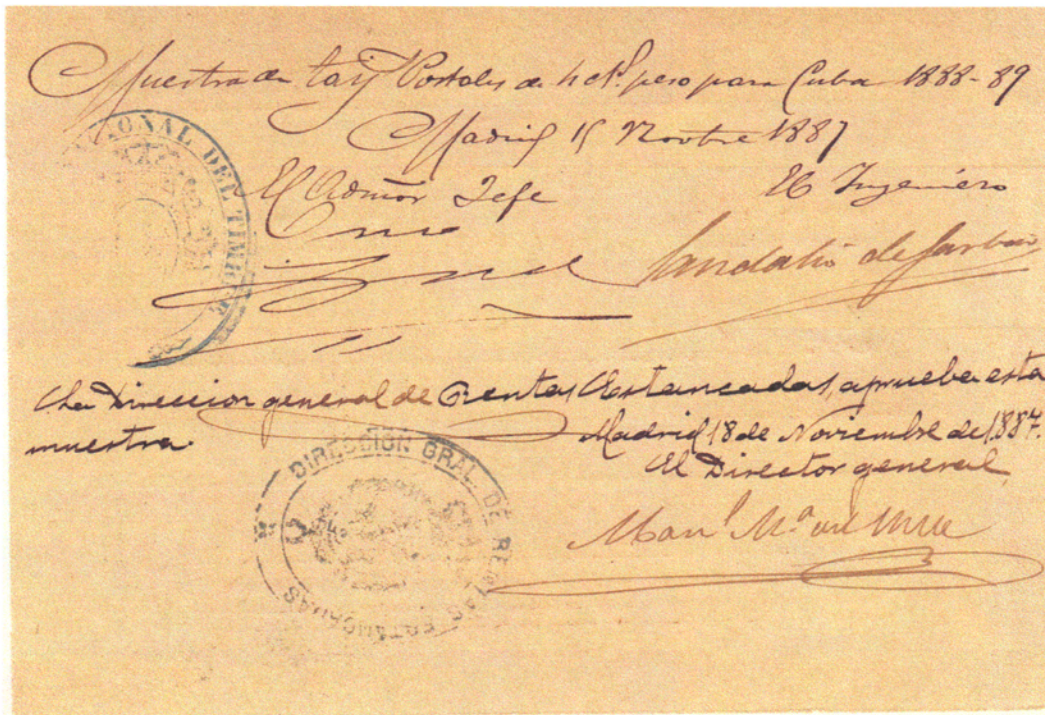 Muestra de taj Postales de 4 ct. peso para Cuba 1888-89
Madrid 15 Novbre 1887
El Admor Jefe El Ingeniero
Sandalio de
La Direccion general de Rentas Estancadas, aprueba esta
muestra. Madrid 18 de Noviembre de 1.887.
El Director general,
Man.l M.a del
ONAL DEL TIMBRE
DIRECCIÓN GRAL. DE RENTAS ESTANCADAS